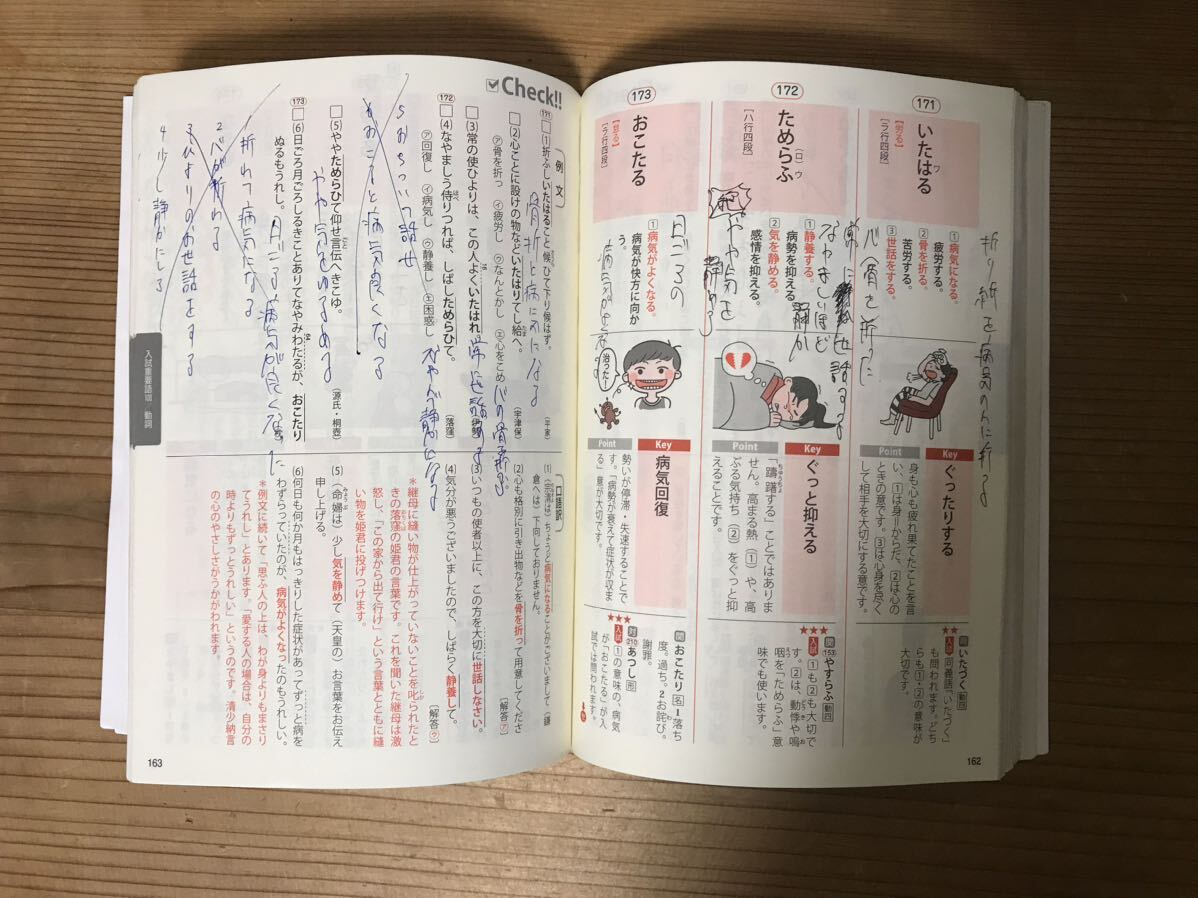 171
いたはる
ワ
【労る】
[ラ行四段]
①病気になる。
疲労する。
②骨を折る。
苦労する。
③世話をする。
Key
ぐったりする
Point
身も心も疲れ果てたことを言
い、①は身=からだ、②は心の
ときの意です。③は心身を尽く
して相手を大切にする意です。
★★
関 いたづく 動四
入試 同義語「いたづく」
も問われます。どち
らも①・②の意味が
大切です。
172
ためらふ
(ロ)ウ
[ハ行四段]
①静養する。
病勢を抑える。
②気を静める。
感情を抑える。
Key
ぐっと抑える
Point
「躊躇する」ことではありま
ちゅうちょ
せん。高まる熱(①)や、高
ぶる気持ち(②)をぐっと抑
えることです。
★★★
関 153 やすらふ 動四
入試 ①も②も大切で
す。②は、動悸や嗚
咽を「ためらふ」意
味でも使います。
173
おこたる
【怠る】
[ラ行四段]
①病気がよくなる。
病気が快方に向か
う。
治ったー!
Key
病気回復
Point
勢いが停滞・失速することで
す。「病勢が衰えて症状が収ま
る」意が大切です。
★★★
関 おこたり 名 1落ち
度。過ち。2お詫び。
謝罪。
対 210 あつし 形
入試 ①の意味の、病気
が「おこたる」が入
試では問われます。
162
Check!!
〔例文〕
171
(1)折ふしいたはること候ひて下り候はず。
(平家)
(2)心ことに設けの物などいたはりてし給へ。
(宇津保)
㋐骨を折っ ㋑疲労し ㋒なんとかし ㋓心をこめ
(3)常の使ひよりは、この人よくいたはれ。
172
(4)なやましう侍りつれば、しばしためらひて。
(落窪)
㋐回復し ㋑病気し ㋒静養し ㋓困惑し
(5)ややためらひて仰せ言伝へきこゆ。
(源氏・桐壺)
173
(6)日ごろ月ごろしるきことありてなやみわたるが、おこたり
ぬるもうれし。
〔口語訳〕
(1)(宗清は)ちょうど病気になることがございまして(鎌
倉へは)下向しておりません。
(2)心も格別に引き出物などを骨を折って用意してくださ
い。
[解答㋐]
(3)いつもの使者以上に、この方を大切に世話しなさい。
(4)気分が悪うございましたので、しばらく静養して。
[解答㋒]
*継母に縫い物が仕上がっていないことを叱られたと
きの落窪の姫君の言葉です。これを聞いた継母は激
怒し、「この家から出て行け」という言葉とともに縫
い物を姫君に投げつけます。
(5)(命婦は)少し気を静めて(天皇の)お言葉をお伝え
申し上げる。
(6)何日も何か月もはっきりした症状があってずっと病を
わずらっていたのが、病気がよくなったのもうれしい。
*例文に続いて「思ふ人の上は、わが身よりもまさり
てうれし」とあります。「愛する人の場合は、自分の
時よりもずっとうれしい」というのです。清少納言
の心のやさしさがうかがわれます。
入試重要語 動詞
163
日ごろの
骨折と病にかになる
5おちついて話せ
やや気をゆるめる
折れて病気になる
2心が折れる
4少し静かにしる